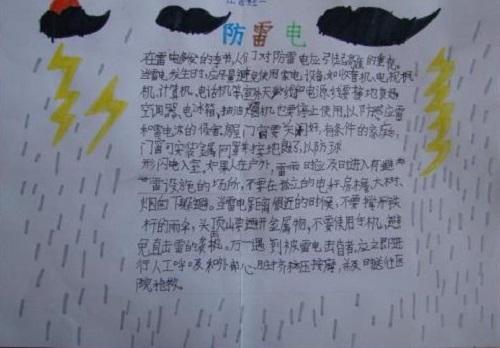 防雷电
在雷电多发的季节,人们对防雷电应引起高度的重视。
当雷电发生时,应尽量避免使用家电设备,如收音机、电视机
机、计算机、电话机等
空调器、电冰箱、抽油烟机也要停止使用,以防感应雷
和雷电波的侵害,门窗要关闭好,有条件的家庭,
门窗可安装金属网罩并接地,以防球
形闪电入室。如果人在户外,雷雨时应及时进入有避
雷设施的场所,不要在孤立的电杆、房檐、大树、
烟囱下躲避。当雷电距离很近的时候,不要撑有铁
杆的雨伞,头顶上要避开金属物,不要使用手机,避
免直击雷的袭击。万一遇到被雷电击昏者,应立即进
行人工呼吸和外部心脏挤压按摩,并及时送往医
院抢救。